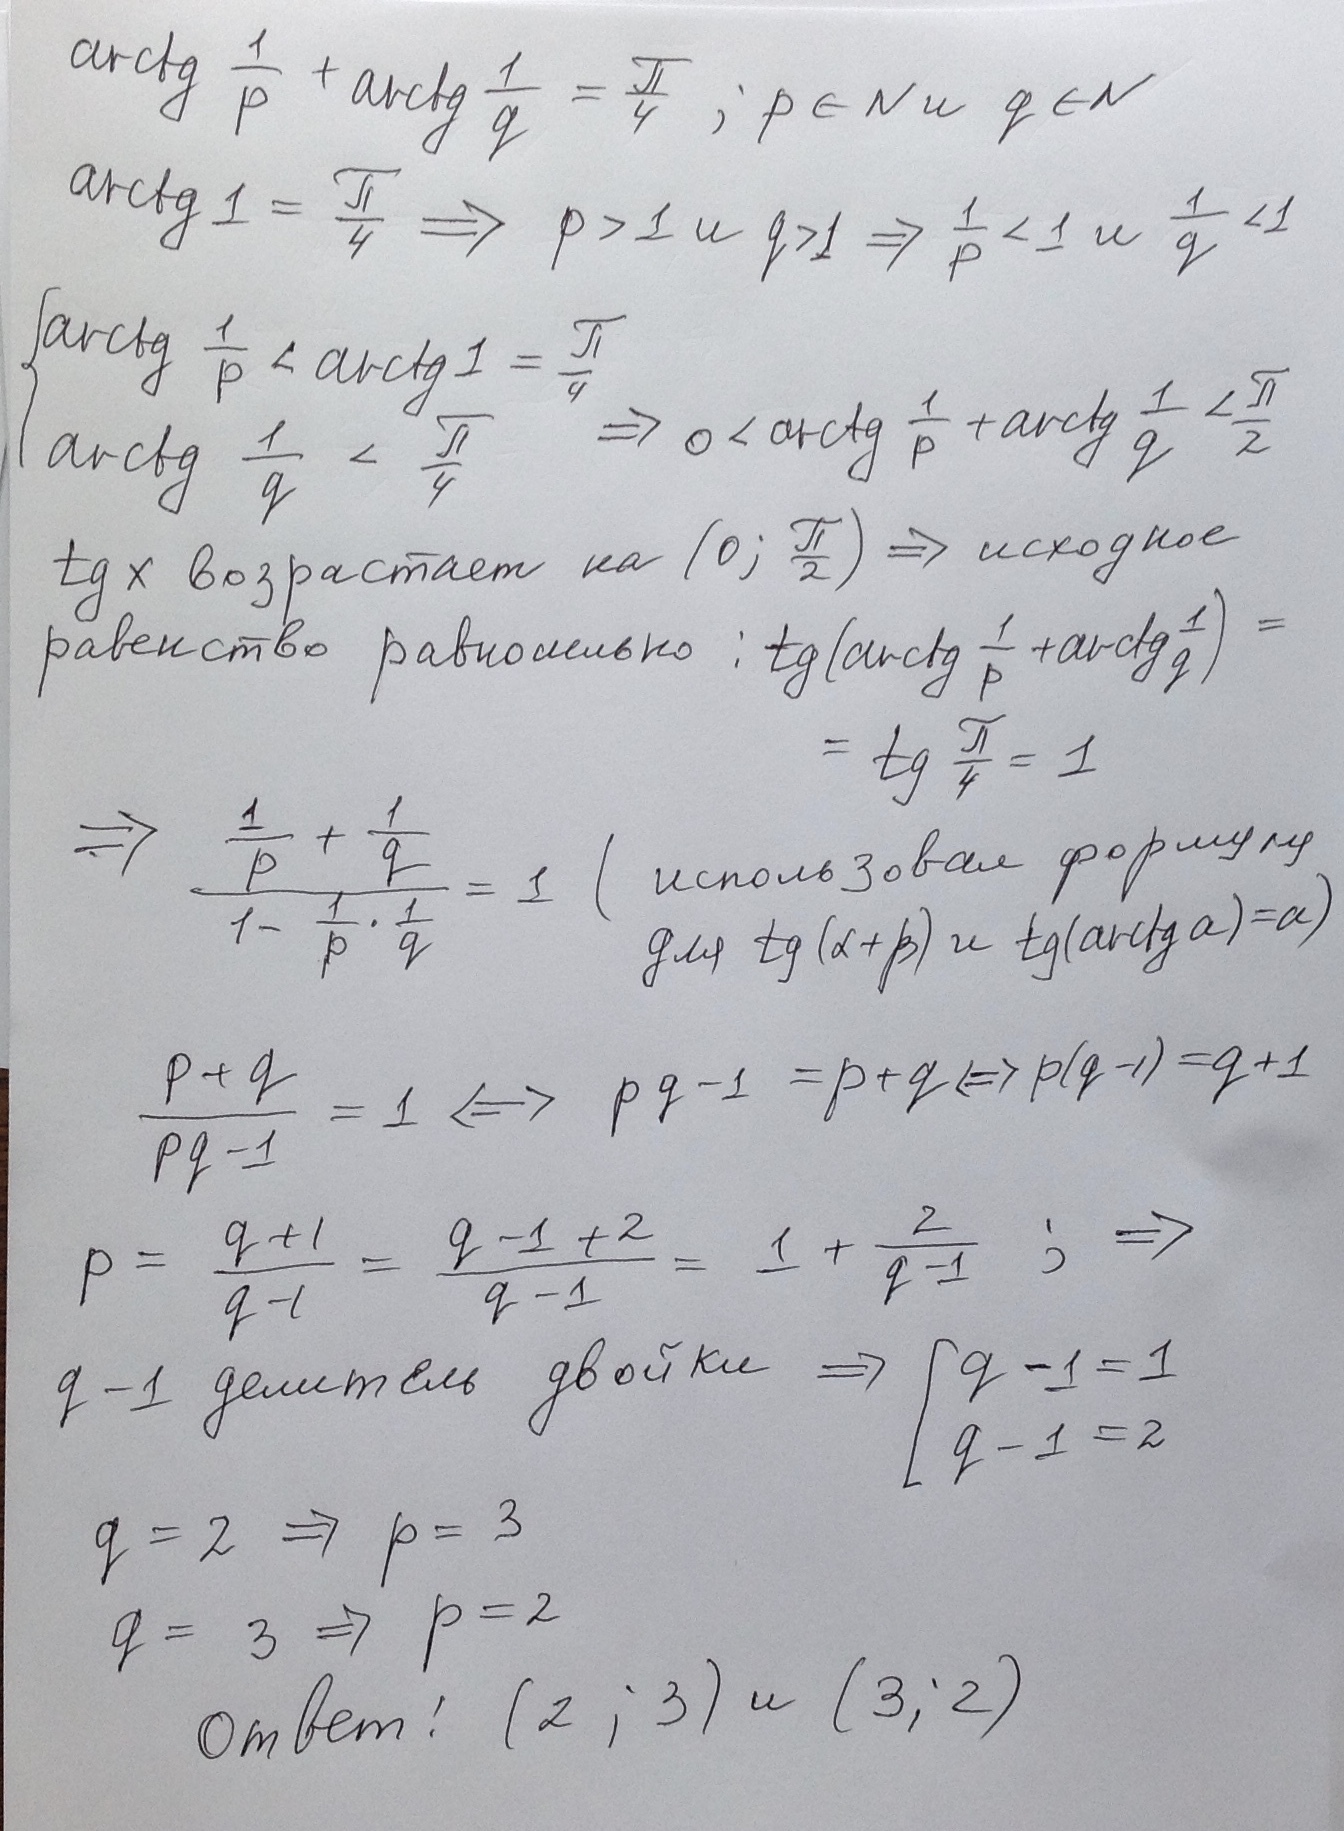 arctg 1/p + arctg 1/q = π/4 ; p ∈ N и q ∈ N
arctg 1 = π/4 ⇒ p > 1 и q > 1 ⇒ 1/p < 1 и 1/q < 1
{ arctg 1/p < arctg 1 = π/4
arctg 1/q < π/4 ⇒ 0 < arctg 1/p + arctg 1/q < π/2
tg x возрастает на (0; π/2) ⇒ исходное
равенство равносильно : tg(arctg 1/p + arctg 1/q) =
= tg π/4 = 1
⇒ (1/p + 1/q)/(1 - 1/p · 1/q) = 1 ( использовал формулу
для tg(α+β) и tg(arctg a) = a)
(p+q)/(pq-1) = 1 ⇔ pq-1 = p+q ⇔ p(q-1) = q+1
p = (q+1)/(q-1) = (q-1+2)/(q-1) = 1 + 2/(q-1) ; ⇒
q-1 делитель двойки ⇒ [ q-1 = 1
q-1 = 2
q = 2 ⇒ p = 3
q = 3 ⇒ p = 2
Ответ: (2; 3) и (3; 2)